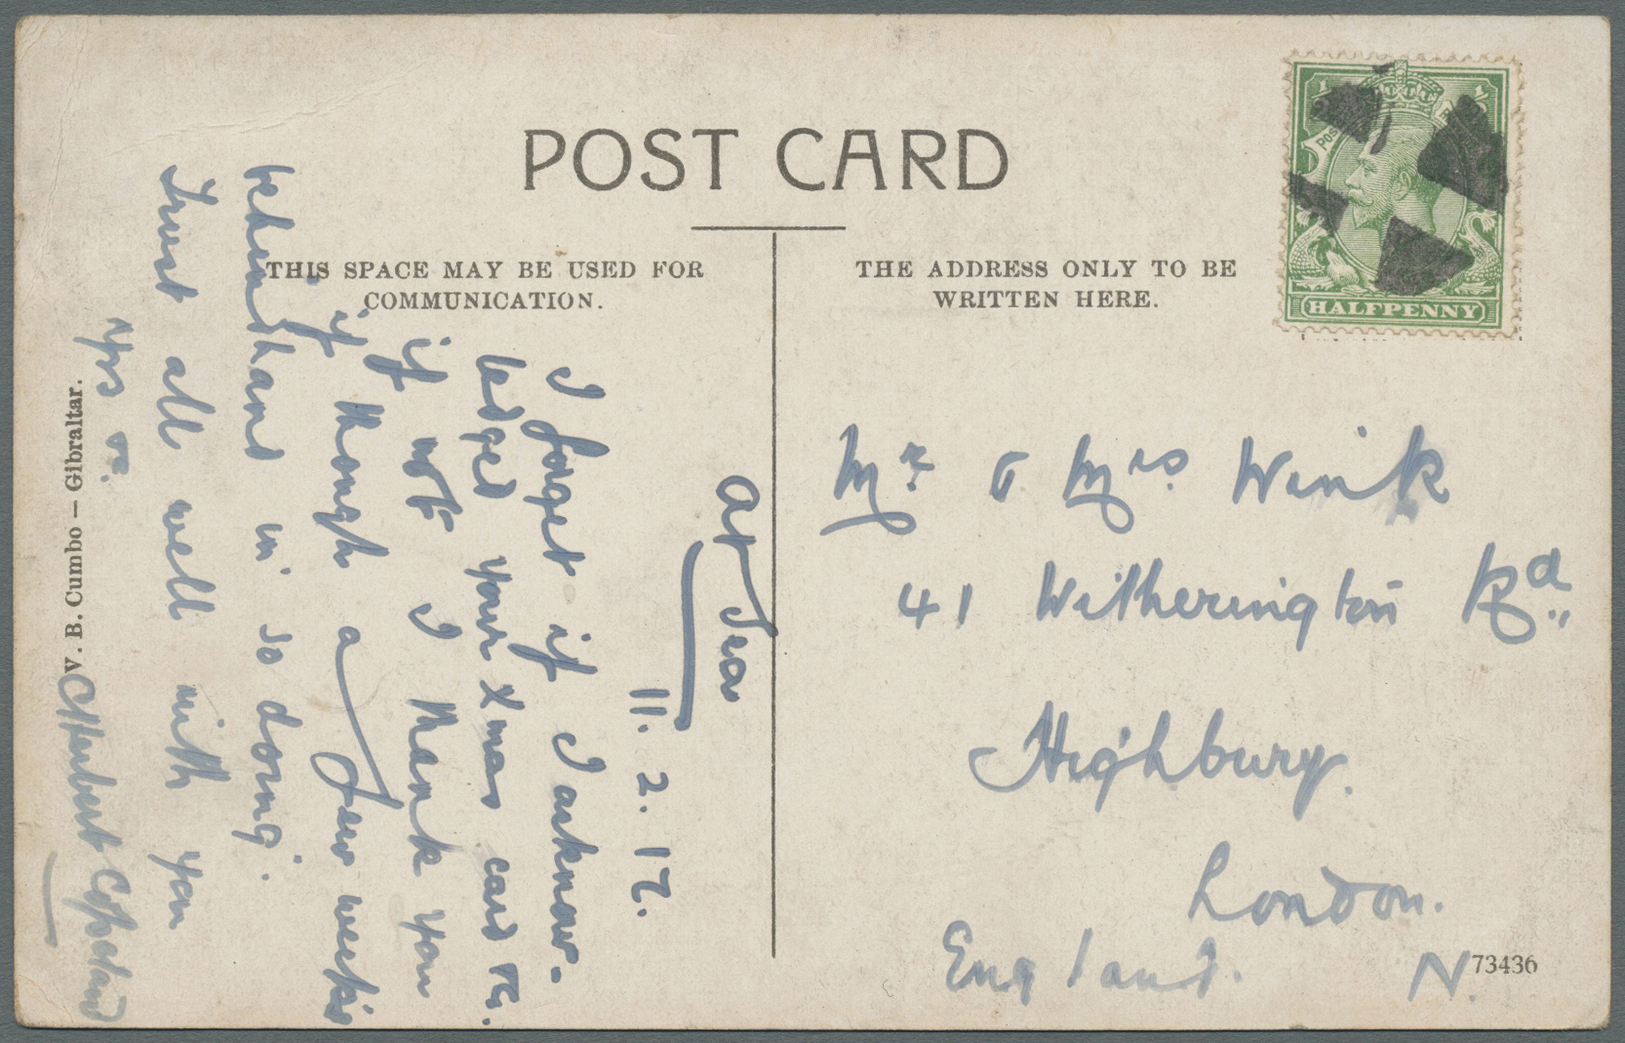 POST CARD
THIS SPACE MAY BE USED FOR
COMMUNICATION.
THE ADDRESS ONLY TO BE
WRITTEN HERE.
HALFPENNY
At Sea
11. 2. 17.
I forget if I acknow-
ledged your Xmas card etc.
if not I thank you
if though a few weeks
behindhand in so doing.
Trust all well with you
Yrs etc.
C Herbert Copeland
V. B. Cumbo — Gibraltar.
Mr & Mrs Wink
41 Witherington Rd
Highbury.
London.
N.
England.
73436